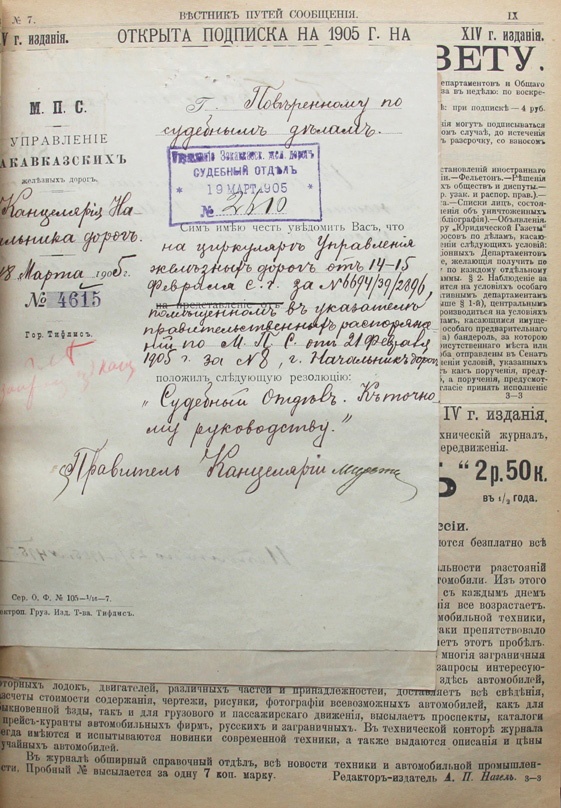 № 7.
ВѢСТНИКЪ ПУТЕЙ СООБЩЕНІЯ.
IX
V г. изданія.
ОТКРЫТА ПОДПИСКА НА 1905 Г. НА
XIV г. изданія.
ЗЕТУ.
М. П. С.
УПРАВЛЕНІЕ
ЗАКАВКАЗСКИХЪ
желѣзныхъ дорогъ.
Канцелярія На
чальника дорогъ.
18 Марта 1905 г.
№ 4615
Гор. Тифлисъ.
Г. Повѣренному по
судебнымъ дѣламъ.
Управленіе Закавказск. жел. дорогъ
СУДЕБНЫЙ ОТДѢЛЪ
* 19 МАРТ. 1905 *
№ 2510
Симъ имѣю честь увѣдомить Васъ, что
на циркуляръ Управленія
желѣзныхъ дорогъ отъ 14-15
Февраля с. г. за № 6694/39/2896,
на представленіе отъ
помѣщенномъ въ указателѣ
правительственныхъ распоряже
ній по М. П. С. отъ 21 Февраля
1905 г. за № 8, г. Начальникъ дорогъ
положилъ слѣдующую резолюцію:
„Судебный Отдѣлъ. Къ точно
му руководству."
Правитель Канцеляріи
Сер. О. Ф. № 105—
Электроп. Груз. Изд. Т-ва. Тифлисъ.
департаментовъ и Общаго
ва въ недѣлю: по воскре-
ѣ: при подпискѣ — 4 руб.
нія могутъ подписываться
омъ случаѣ, до истеченія
ъ разсрочку, со взносомъ
становленій иностраннаго
енія.—Фельетонъ.—Рѣшенія
ъ обществъ и диспуты.
р. указ. и распор. прав.)—
та.—Списки лицъ, состоя-
ленія объ уничтоженныхъ
бліографія).—Объявленія.
ру „Юридической Газеты"
росовъ по дѣламъ, касаю-
еніи слѣдующихъ условій:
іонныхъ Департаментовъ,
е, желающія получить по
у по каждому отдѣльному
ммы. § 2. Наблюденіе за
ится на условіяхъ особаго
ативнымъ департаментамъ
ьше § 1-й), центральнымъ
роизводиться на условіяхъ
амъ, касающимся имуще-
особаго предварительнаго
а) бандероль, за которую
рисутственнаго мѣста или
оба отправлены въ Сенатъ
еніи условій, указанныхъ
какъ порученія, преду-
а, а порученія, предусмот-
гласіе принять исполненіе
3—3
IV г. изданія.
хническій журналъ,
ередвиженія.
Ь“ 2 р. 50 к.
въ 1/2 года.
ессіи.
ются безплатно всѣ
альности разстояній
томобили. Изъ этого
съ каждымъ днемъ
нія все возрастаетъ.
мобильной техники,
таки препятствовало
яетъ этотъ пробѣлъ.
многія заграничныя
запросы интересую-
здѣсь автомобилей,
оторныхъ лодокъ, двигателей, различныхъ частей и принадлежностей, доставляетъ всѣ свѣдѣнія,
азсчеты стоимости содержанія, чертежи, рисунки, фотографіи всевозможныхъ автомобилей, какъ для
быкновенной ѣзды, такъ и для грузового и пассажирскаго движенія, высылаетъ проспекты, каталоги
прейсъ-куранты автомобильныхъ фирмъ, русскихъ и заграничныхъ. Въ технической конторѣ журнала
сегда имѣются и испытываются новинки современной техники, а также выдаются описанія и цѣны
лучайныхъ автомобилей.
Въ журналѣ обширный справочный отдѣлъ, всѣ новости техники и автомобильной промышлен-
ости. Пробный № высылается за одну 7 коп. марку.
Редакторъ-издатель А. П. Нагель. 3—3